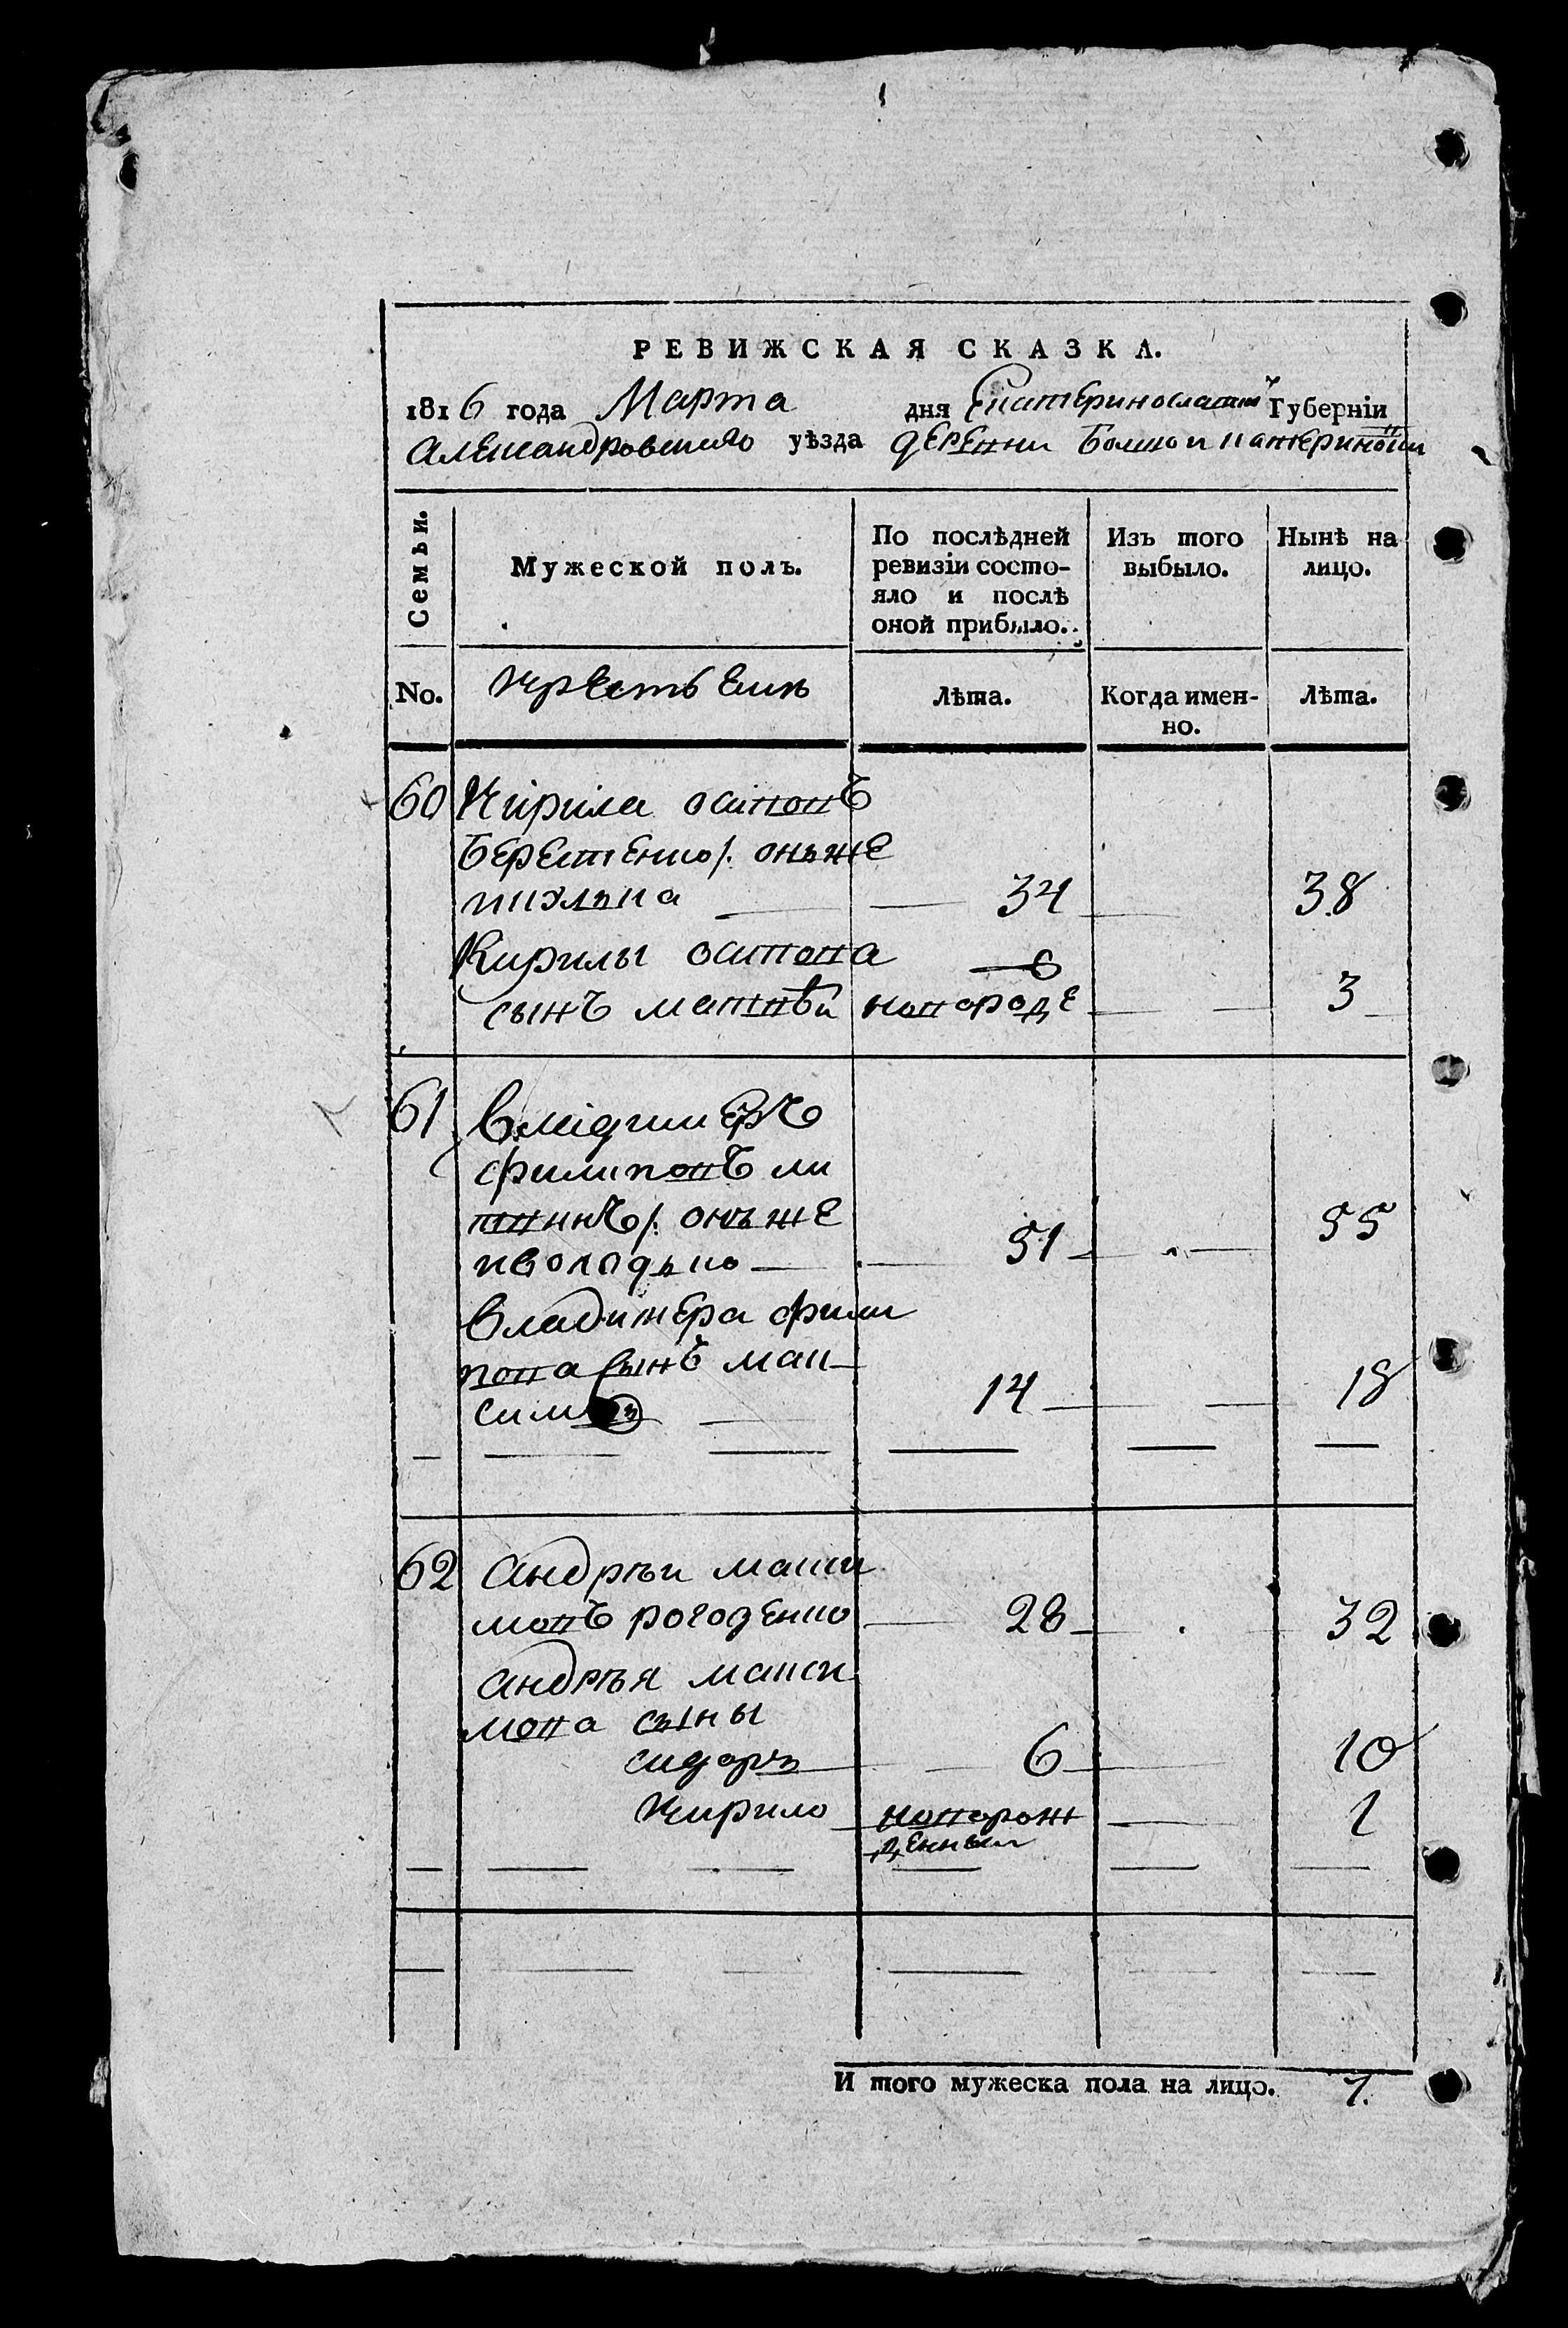 РЕВИЖСКАЯ СКАЗКА.
1816 года Марта дня Екатеринославской Губерніи
Александровскаго уѣзда деревни Болшой катериновки
Семьи.
Мужеской полъ.
По послѣдней ревизіи состояло и послѣ оной прибыло.
Изъ того выбыло.
Нынѣ на лицо.
No.
крестьянъ
Лѣта.
Когда именно.
Лѣта.
60 Кирила осиповъ
Берестенко/. онъ же
34 38
Кирилы осипова
сынъ матвѣй новороде 3
61 Владимеръ
филиповъ ли
онъ же
51 55
Владимера фили
пова сынъ мак
симъ 14 18
62 андрѣи макси
мовъ рогоденко 28 32
андрѣя макси
мова сыны
сидоръ 6 10
Кирило новорож 1
денныи
И того мужеска пола на лицо. 7.